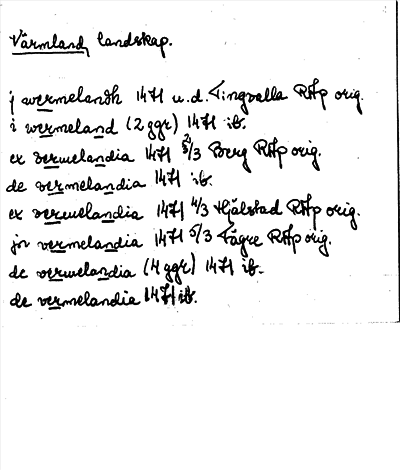 Värmland, landskap.
j wermelandh 1471 u.d. Tingvalla RAp orig.
i wermeland (2 ggr) 1471 ib.
ex vermelandia 1471 2/3 Berg RAp orig.
de vermelandia 1471 ib.
ex vermelandia 1471 4/3 Hjälstad RAp orig.
jn vermelandia 1471 5/3 Fägre RAp orig.
de vermelandia (4 ggr) 1471 ib.
de vermelandia 1471 ib.